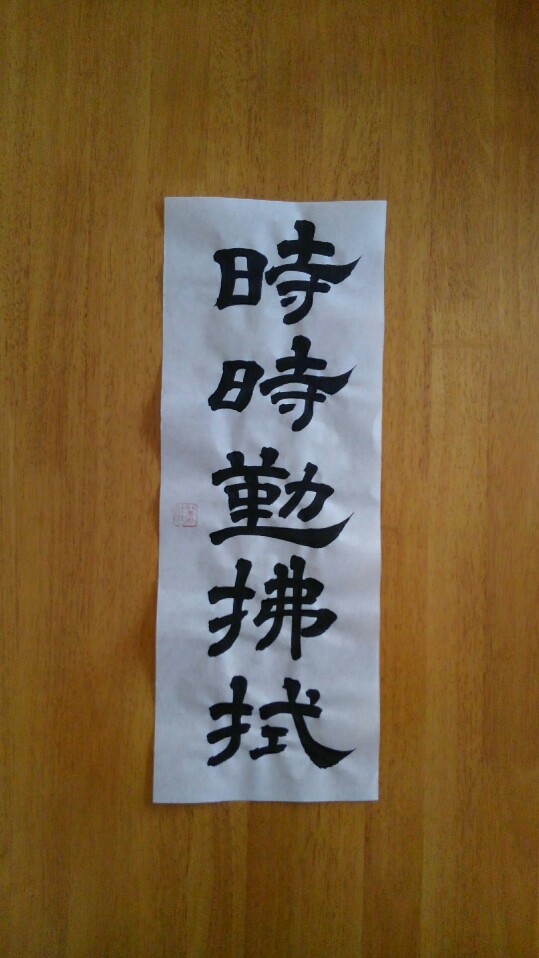 時時勤拂拭